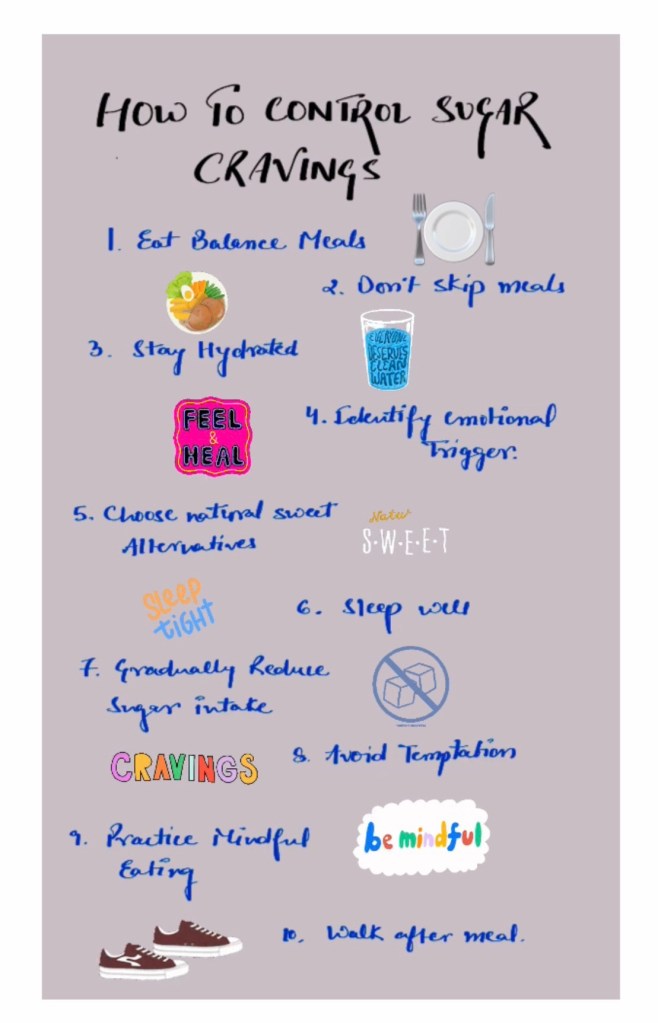 HOW TO CONTROL SUGAR
CRAVINGS
1. Eat Balance Meals
2. Don't skip meals
3. Stay Hydrated
EVERYONE
DESERVES
CLEAN
WATER
FEEL
&
HEAL
4. Identify emotional
Trigger.
5. Choose natural sweet
Alternatives
S·W·E·E·T
SLEEP
TIGHT
6. Sleep well
7. Gradually Reduce
Sugar intake
CRAVINGS
8. Avoid Temptation
9. Practice Mindful
Eating
be mindful
10. Walk after meal.